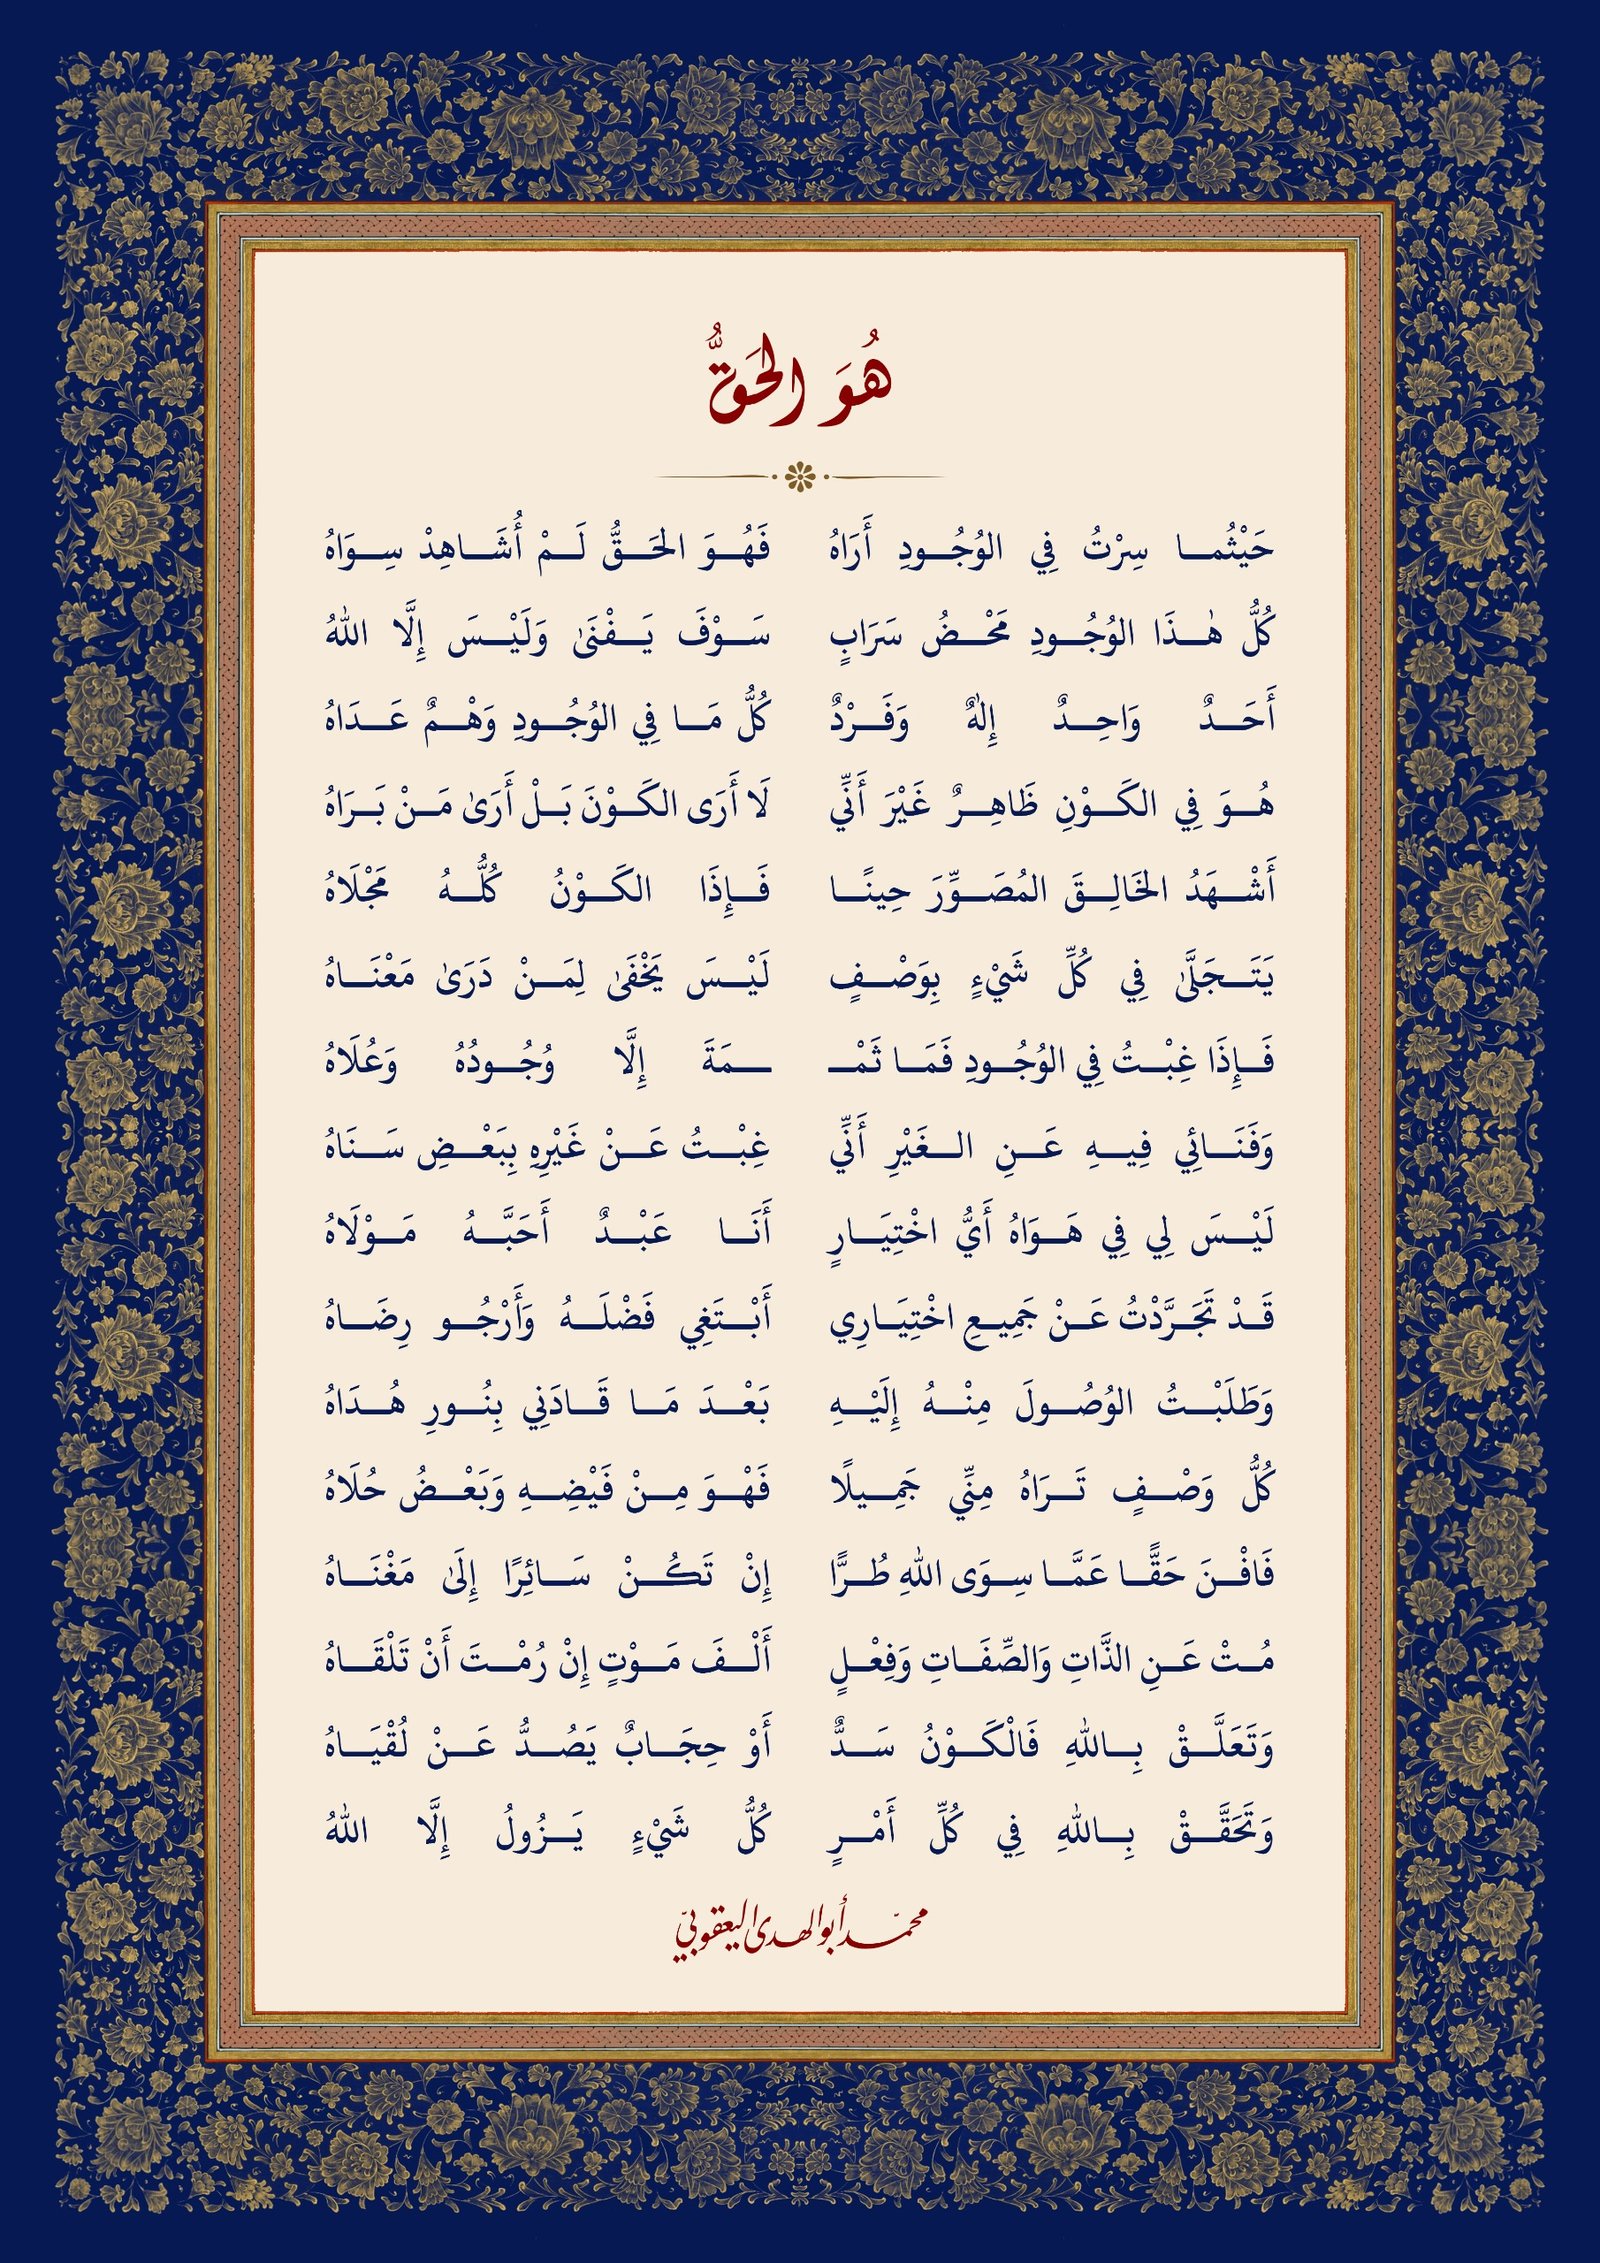 هُوَ الحَقُّ
حَيْثُما سِرْتُ فِي الوُجُودِ أَرَاهُ فَهُوَ الحَقُّ لَمْ أُشَاهِدْ سِوَاهُ
كُلُّ هٰذَا الوُجُودِ مَحْضُ سَرَابٍ سَوْفَ يَفْنَىٰ وَلَيْسَ إِلَّا اللهُ
أَحَدٌ وَاحِدٌ إِلٰهٌ وَفَرْدٌ كُلُّ مَا فِي الوُجُودِ وَهْمٌ عَدَاهُ
هُوَ فِي الكَوْنِ ظَاهِرٌ غَيْرَ أَنِّي لَا أَرَى الكَوْنَ بَلْ أَرَىٰ مَنْ بَرَاهُ
أَشْهَدُ الخَالِقَ المُصَوِّرَ حِينًا فَإِذَا الكَوْنُ كُلُّهُ مَجْلَاهُ
يَتَجَلَّىٰ فِي كُلِّ شَيْءٍ بِوَصْفٍ لَيْسَ يَخْفَىٰ لِمَنْ دَرَىٰ مَعْنَاهُ
فَإِذَا غِبْتُ فِي الوُجُودِ فَمَا ثَمْـ ـمَةَ إِلَّا وُجُودُهُ وَعُلَاهُ
وَفَنَائِي فِيهِ عَنِ الغَيْرِ أَنِّي غِبْتُ عَنْ غَيْرِهِ بِبَعْضِ سَنَاهُ
لَيْسَ لِي فِي هَوَاهُ أَيُّ اخْتِيَارٍ أَنَا عَبْدٌ أَحَبَّهُ مَوْلَاهُ
قَدْ تَجَرَّدْتُ عَنْ جَمِيعِ اخْتِيَارِي أَبْتَغِي فَضْلَهُ وَأَرْجُو رِضَاهُ
وَطَلَبْتُ الوُصُولَ مِنْهُ إِلَيْهِ بَعْدَ مَا قَادَنِي بِنُورِ هُدَاهُ
كُلُّ وَصْفٍ تَرَاهُ مِنِّي جَمِيلًا فَهْوَ مِنْ فَيْضِهِ وَبَعْضُ حُلَاهُ
فَافْنَ حَقًّا عَمَّا سِوَى اللهِ طُرًّا إِنْ تَكُنْ سَائِرًا إِلَىٰ مَغْنَاهُ
مُتْ عَنِ الذَّاتِ وَالصِّفَاتِ وَفِعْلٍ أَلْفَ مَوْتٍ إِنْ رُمْتَ أَنْ تَلْقَاهُ
وَتَعَلَّقْ بِاللهِ فَالْكَوْنُ سَدٌّ أَوْ حِجَابٌ يَصُدُّ عَنْ لُقْيَاهُ
وَتَحَقَّقْ بِاللهِ فِي كُلِّ أَمْرٍ كُلُّ شَيْءٍ يَزُولُ إِلَّا اللهُ
محمّد أبو الهدى اليعقوبيّ